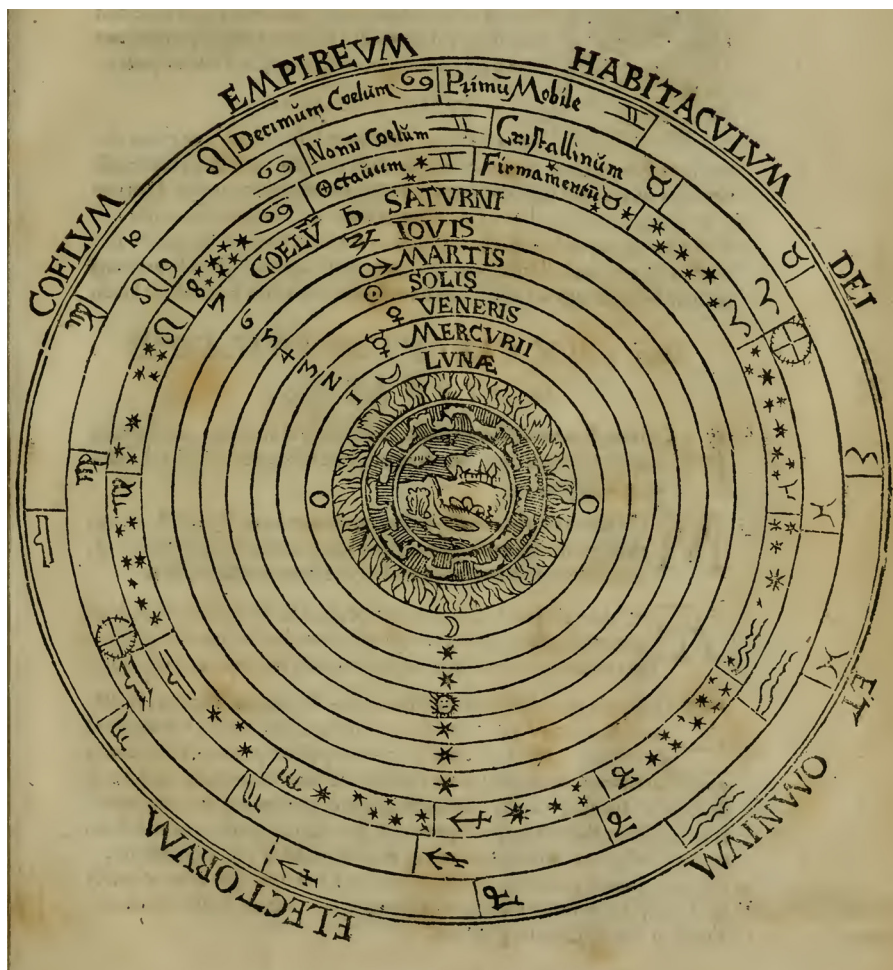 COELVM EMPIREVM HABITACVLVM DEI ET OMNIVM ELECTORVM
Decimũm Coelum ♋ Primũ Mobile ♊
Nonũ Coelum ♊ Cristallinum ♉
Octauum ♊ Firmamentũ ♉
COELṼ ♄ SATVRNI
♃ IOVIS
♂ MARTIS
☉ SOLIS
♀ VENERIS
☿ MERCVRII
☽ LVNÆ
10
9
8
7
6
5
4
3
2
1